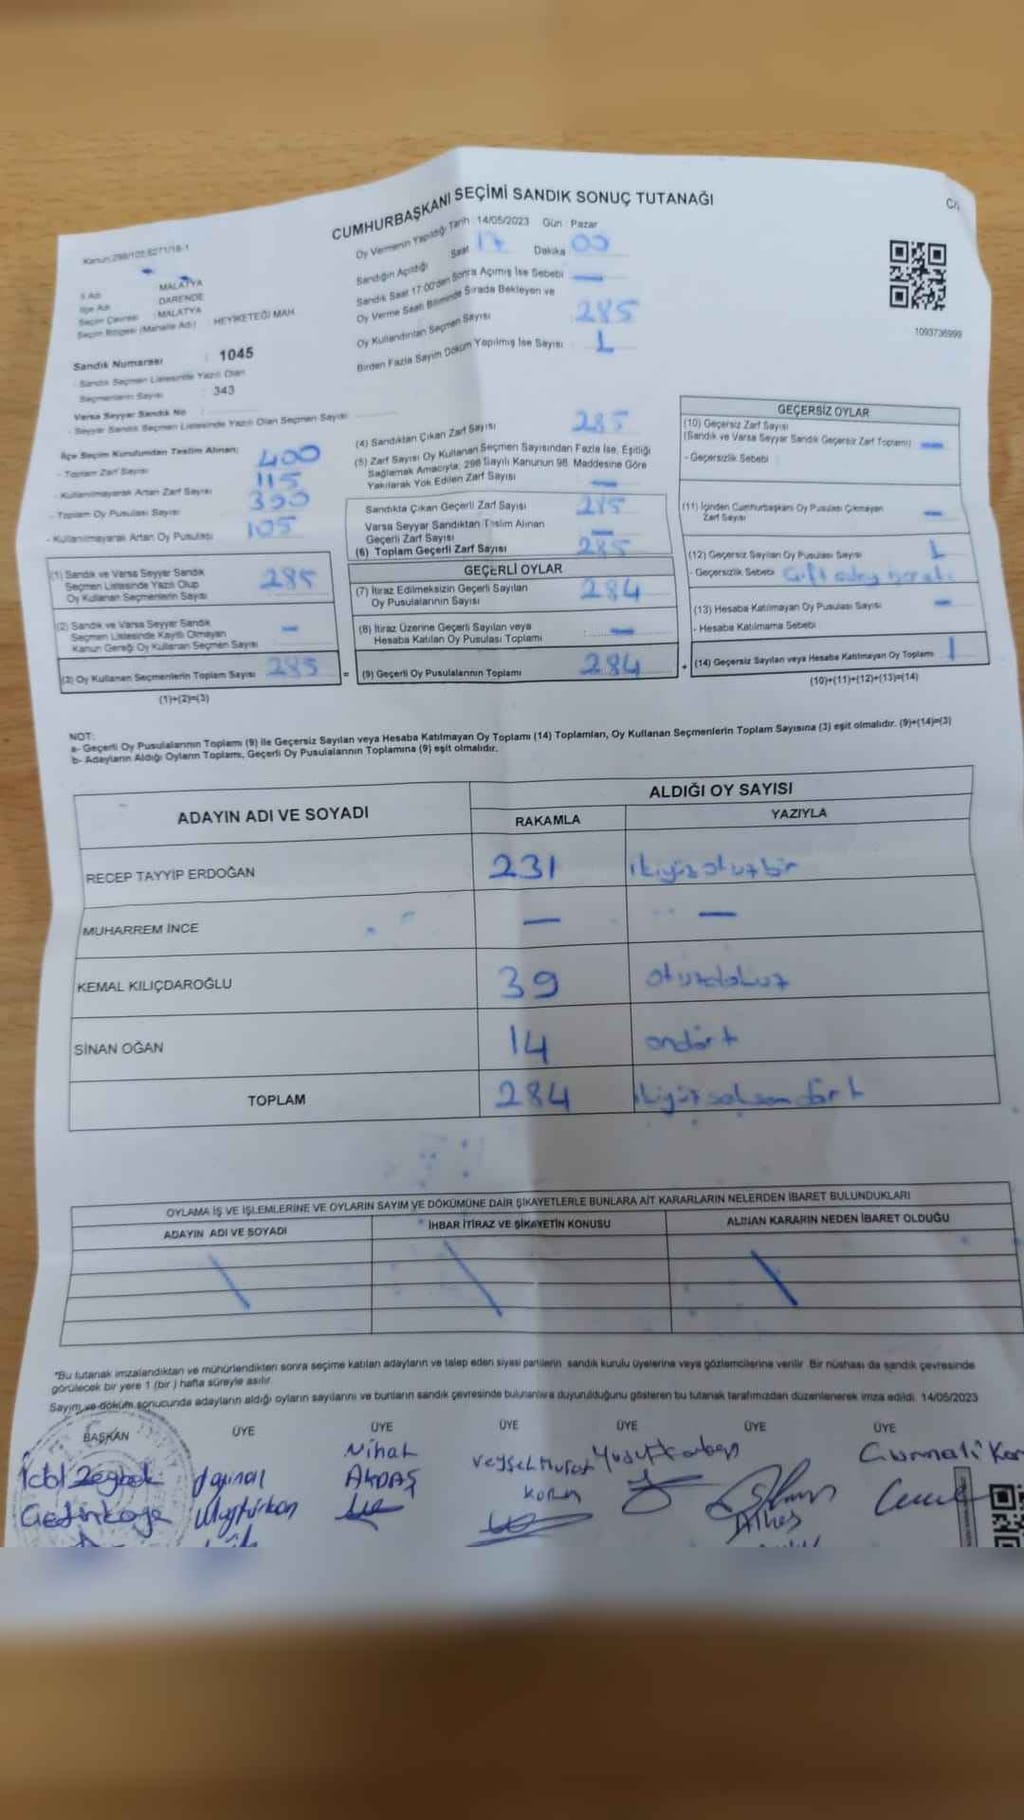 CUMHURBAŞKANI SEÇİMİ SANDIK SONUÇ TUTANAĞI
Oy Vermenin Yapıldığı Tarih 14/05/2023 Gün : Pazar
Sandığın Açıldığı Saat 17 Dakika 00
Sandık Saat 17:00'den Sonra Açılmış İse Sebebi —
Oy Verme Saati Bitiminde Sırada Bekleyen ve
Oy Kullandırılan Seçmen Sayısı 285
Birden Fazla Sayım Döküm Yapılmış İse Sayısı 1
1093736999
İl Adı : MALATYA
İlçe Adı : DARENDE
Seçim Çevresi : MALATYA
Seçim Bölgesi (Mahalle Adı) : HEYİKETEĞİ MAH.
Sandık Numarası : 1045
- Sandık Seçmen Listesinde Yazılı Olan
Seçmenlerin Sayısı : 343
Varsa Seyyar Sandık No
- Seyyar Sandık Seçmen Listesinde Yazılı Olan Seçmen Sayısı
İlçe Seçim Kurulundan Teslim Alınan;
- Toplam Zarf Sayısı 400
- Kullanılmayarak Artan Zarf Sayısı 115
- Toplam Oy Pusulası Sayısı 390
- Kullanılmayarak Artan Oy Pusulası 105
(1) Sandık ve Varsa Seyyar Sandık
Seçmen Listesinde Yazılı Olup
Oy Kullanan Seçmenlerin Sayısı 285
(2) Sandık ve Varsa Seyyar Sandık
Seçmen Listesinde Kayıtlı Olmayan
Kanun Gereği Oy Kullanan Seçmen Sayısı —
(3) Oy Kullanan Seçmenlerin Toplam Sayısı 285
(1)+(2)=(3)
(4) Sandıktan Çıkan Zarf Sayısı 285
(5) Zarf Sayısı Oy Kullanan Seçmen Sayısından Fazla İse, Eşitliği
Sağlamak Amacıyla; 298 Sayılı Kanunun 98. Maddesine Göre
Yakılarak Yok Edilen Zarf Sayısı —
Sandıkta Çıkan Geçerli Zarf Sayısı 285
Varsa Seyyar Sandıktan Teslim Alınan
Geçerli Zarf Sayısı —
(6) Toplam Geçerli Zarf Sayısı 285
GEÇERLİ OYLAR
(7) İtiraz Edilmeksizin Geçerli Sayılan
Oy Pusulalarının Sayısı 284
(8) İtiraz Üzerine Geçerli Sayılan veya
Hesaba Katılan Oy Pusulası Toplamı —
= (9) Geçerli Oy Pusulalarının Toplamı 284
GEÇERSİZ OYLAR
(10) Geçersiz Zarf Sayısı
(Sandık ve Varsa Seyyar Sandık Geçersiz Zarf Toplamı) —
- Geçersizlik Sebebi
(11) İçinden Cumhurbaşkanı Oy Pusulası Çıkmayan
Zarf Sayısı —
(12) Geçersiz Sayılan Oy Pusulası Sayısı 1
- Geçersizlik Sebebi Çift
(13) Hesaba Katılmayan Oy Pusulası Sayısı —
- Hesaba Katılmama Sebebi
+ (14) Geçersiz Sayılan veya Hesaba Katılmayan Oy Toplamı 1
(10)+(11)+(12)+(13)=(14)
NOT:
a- Geçerli Oy Pusulalarının Toplamı (9) ile Geçersiz Sayılan veya Hesaba Katılmayan Oy Toplamı (14) Toplamları, Oy Kullanan Seçmenlerin Toplam Sayısına (3) eşit olmalıdır. (9)+(14)=(3)
b- Adayların Aldığı Oyların Toplamı, Geçerli Oy Pusulalarının Toplamına (9) eşit olmalıdır.
ADAYIN ADI VE SOYADI
ALDIĞI OY SAYISI
RAKAMLA YAZIYLA
RECEP TAYYİP ERDOĞAN 231 ikiyüzotuzbir
MUHARREM İNCE — —
KEMAL KILIÇDAROĞLU 39 otuzdokuz
SİNAN OĞAN 14 ondört
TOPLAM 284 ikiyüzseksendört
OYLAMA İŞ VE İŞLEMLERİNE VE OYLARIN SAYIM VE DÖKÜMÜNE DAİR ŞİKAYETLERLE BUNLARA AİT KARARLARIN NELERDEN İBARET BULUNDUKLARI
ADAYIN ADI VE SOYADI İHBAR İTİRAZ VE ŞİKAYETİN KONUSU ALINAN KARARIN NEDEN İBARET OLDUĞU
*Bu tutanak imzalandıktan ve mühürlendikten sonra seçime katılan adayların ve talep eden siyasi partilerin sandık kurulu üyelerine veya gözlemcilerine verilir. Bir nüshası da sandık çevresinde
görülecek bir yere 1 (bir) hafta süreyle asılır.
Sayım ve döküm sonucunda adayların aldığı oyların sayılarını ve bunların sandık çevresinde bulunanlara duyurulduğunu gösteren bu tutanak tarafımızdan düzenlenerek imza edildi. 14/05/2023
BAŞKAN ÜYE ÜYE ÜYE ÜYE ÜYE ÜYE
Nihat
AKDAŞ
Veysel Murat